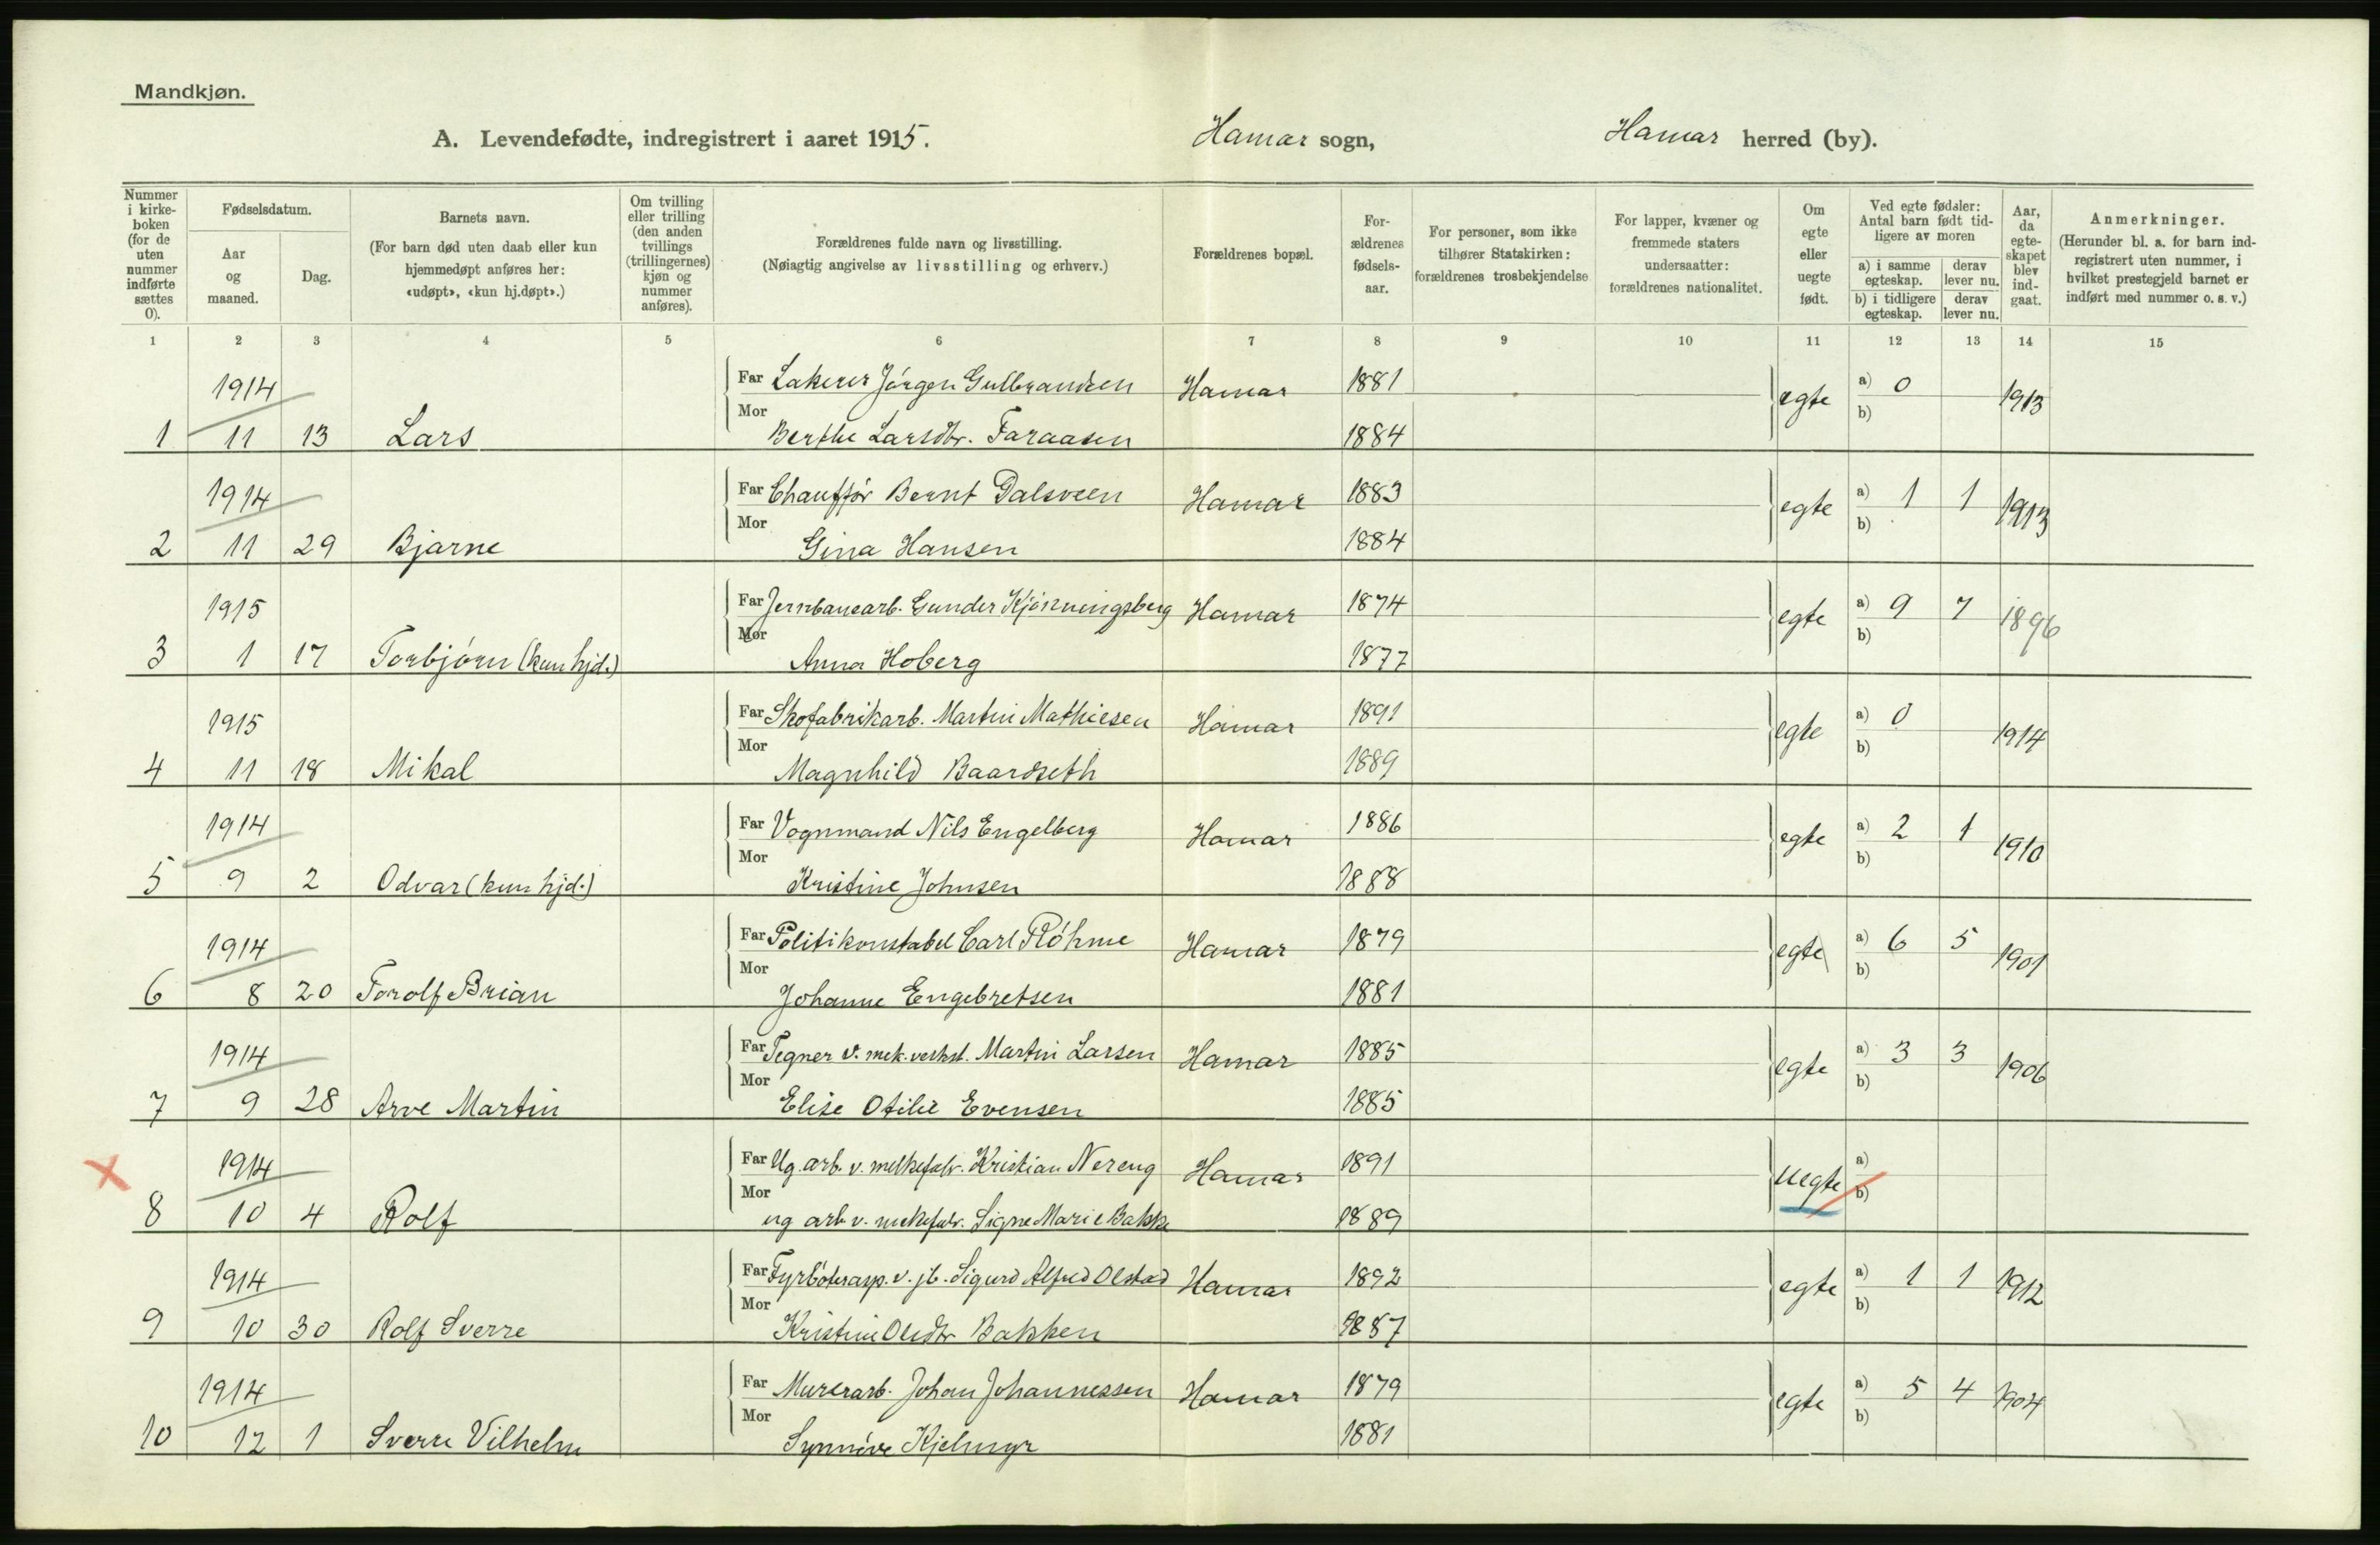 Mandkjøn.
A. Levendefødte, indregistrert i aaret 1915. Hamar sogn, Hamar herred (by).
Nummer i kirkeboken (for de uten nummer indførte sættes 0).
Fødselsdatum.
Aar og maaned.
Dag.
Barnets navn.
(For barn død uten daab eller kun hjemmedøpt anføres her: «udøpt», «kun hj.døpt».)
Om tvilling eller trilling (den anden tvillings (trillingernes) kjøn og nummer anføres).
Forældrenes fulde navn og livsstilling.
(Nøiagtig angivelse av livsstilling og erhverv.)
Forældrenes bopæl.
For-ældrenes fødsels-aar.
For personer, som ikke tilhører Statskirken: forældrenes trosbekjendelse
For lapper, kvæner og fremmede staters undersaatter: forældrenes nationalitet.
Om egte eller uegte født.
Ved egte fødsler: Antal barn født tid-ligere av moren
a) i samme egteskap. derav lever nu.
b) i tidligere egteskap. derav lever nu.
Aar, da egte-skapet blev ind-gaat.
Anmerkninger.
(Herunder bl. a. for barn ind-registrert uten nummer, i hvilket prestegjeld barnet er indført med nummer o. s. v.)
1 2 3 4 5 6 7 8 9 10 11 12 13 14 15
1914 Far Lakerer Jörgen Gulbrandsen Hamar 1881 egte a) 0 1913
1 11 13 Lars Mor Berthe Larsdtr. Faraasen 1884 b)
1914 Far Chaufför Bernt Dalsveen Hamar 1883 egte a) 1 1 1913
2 11 29 Bjarne Mor Gina Hansen 1884 b)
1915 Far Jernbanearb. Gunder Kjönningsberg Hamar 1874 egte a) 9 7 1896
3 1 17 Torbjörn (kun hjd.) Mor Anna Hoberg 1877 b)
1915 Far Skofabrikarb. Martin Mathiesen Hamar 1891 egte a) 0 1914
4 11 18 Mikal Mor Magnhild Baardseth 1889 b)
1914 Far Vognmand Nils Engelberg Hamar 1886 egte a) 2 1 1910
5 9 2 Odvar (kun hjd.) Mor Kristine Johnsen 1888 b)
1914 Far Politikonstabel Carl Röhme Hamar 1879 egte a) 6 5 1901
6 8 20 Torolf Brian Mor Johanne Engebretsen 1881 b)
1914 Far Tegner v. mek. verkst. Martin Larsen Hamar 1885 egte a) 3 3 1906
7 9 28 Arve Martin Mor Elise Otilie Evensen 1885 b)
1914 Far Ug. arb. v. melkefabr. Kristian Nereng Hamar 1891 uegte a)
8 10 4 Rolf Mor ug arb v. melkefabr. Signe Marie Bakke 1889 b)
1914 Far Fyrböterasp. v. jb. Sigurd Alfred Olstad Hamar 1892 egte a) 1 1 1912
9 10 30 Rolf Sverre Mor Kristine Olsdtr Bakken 1887 b)
1914 Far Murerarb. Johan Johannessen Hamar 1879 egte a) 5 4 1904
10 12 1 Sverre Vilhelm Mor Synnöve Kjelmyr 1881 b)